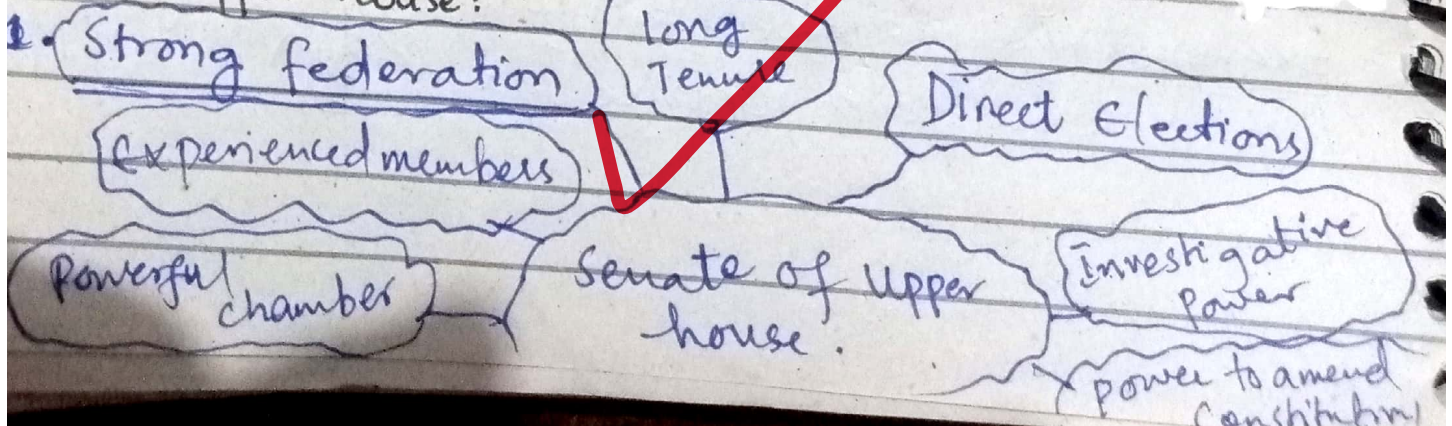 house?
1. Strong federation
long
Tenure
Direct Elections
Experienced members
Powerful
chamber
Senate of Upper
house.
investigative
power
power to amend
Constitution